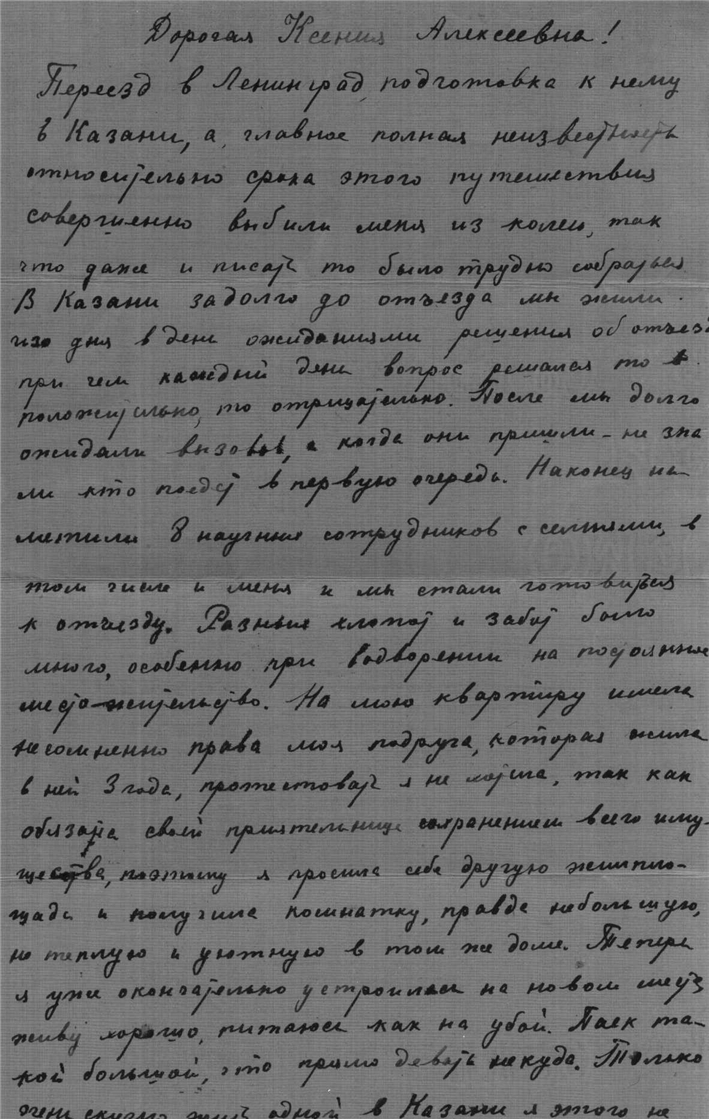 Дорогая Ксения Алексеевна!
Переезд в Ленинград, подготовка к нему
в Казани, а, главное полная неизвестность
относительно срока этого путешествия
совершенно выбили меня из колеи, так
что даже и писать то было трудно собраться
В Казани задолго до отъезда мы жили
изо дня в день ожиданиями решения об отъезде
при чем каждый день вопрос решался то
положительно, то отрицательно. После мы долго
ожидали вызовов, а когда они пришли - не зна
ли кто поедет в первую очередь. Наконец на-
метили 8 научных сотрудников с семьями, в
том числе и меня и мы стали готовиться
к отъезду. Разных хлопот и забот было
много, особенно при водворении на постоянное
место-жительство. На мою квартиру имела
несомненно права моя подруга, которая жила
в ней 3 года, протестовать я не могла, так как
обязана своей приятельнице сохранением всего иму-
щества, поэтому я просила себе другую жилпло-
щадь и получила комнатку, правда небольшую,
но теплую и уютную в том же доме. Теперь
я уже окончательно устроилась на новом месте
живу хорошо, питаюсь как на убой. Паек та-
кой большой, что прямо девать некуда. Только
очень скучно жить одной в Казани я этого не